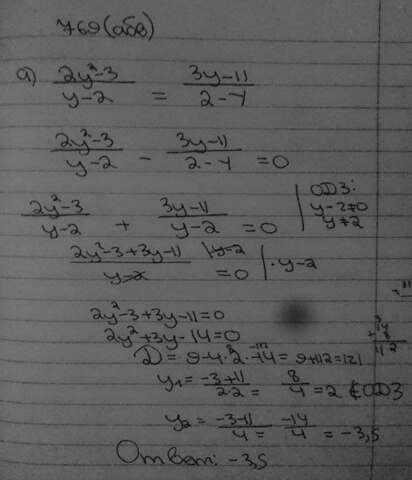 769(абв)
а) (2y²-3)/(y-2) = (3y-11)/(2-y)
(2y²-3)/(y-2) - (3y-11)/(2-y) = 0
(2y²-3)/(y-2) + (3y-11)/(y-2) = 0 | ОДЗ: y-2≠0 y≠2
(2y²-3+3y-11)/(y-2) |y-2 = 0 | · y-2
2y²-3+3y-11=0
2y²+3y-14=0
D = 9-4·2·-14 = 9+112=121
y₁ = (-3+11)/(2·2) = 8/4 = 2 ∉ ОДЗ
y₂ = (-3-11)/4 = -14/4 = -3,5
Ответ: -3,5